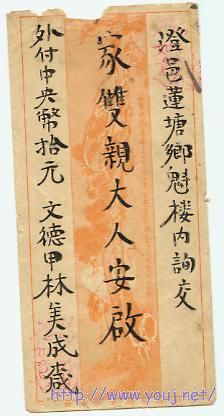 澄邑蓮塘鄉魁楼内詢交
家雙親大人安啟
外付中央幣拾元 文德甲林美成緘
http://www.youj.net/